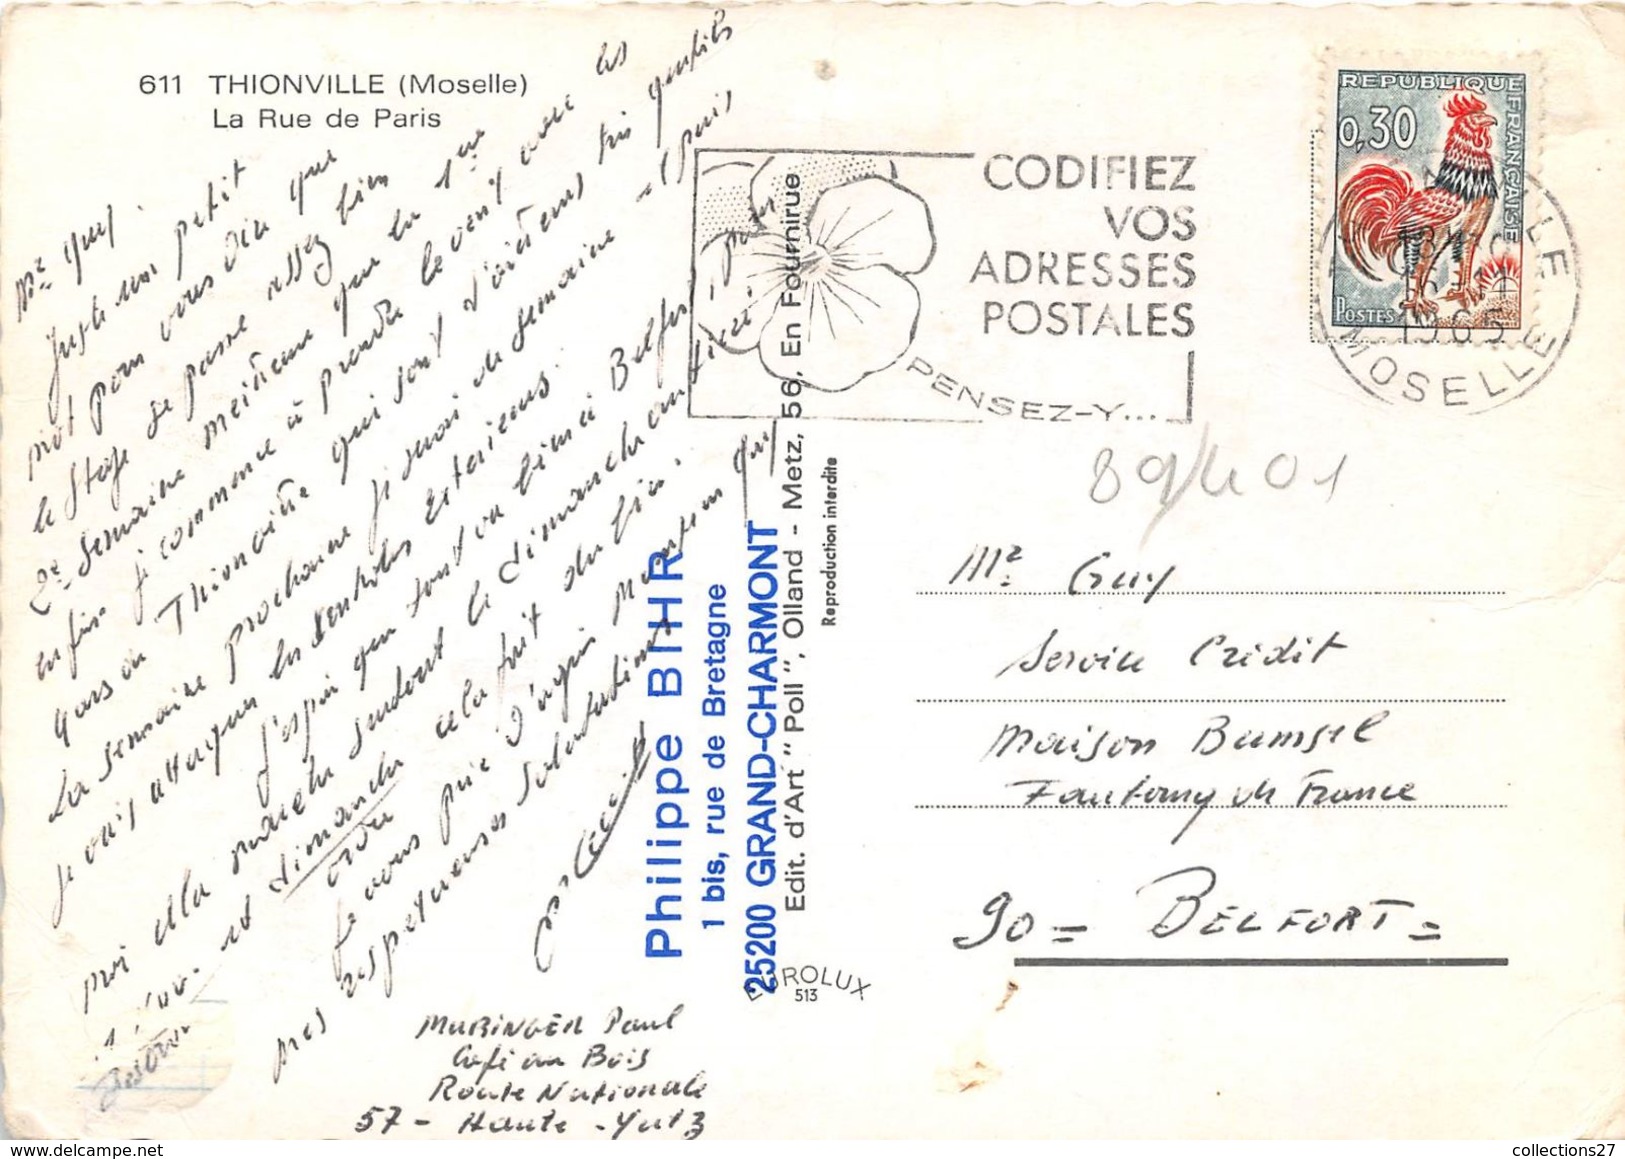 611 THIONVILLE (Moselle)
La Rue de Paris
Mr Guy.
Juste un petit
mot pour vous dire que
le stage se passe assez bien
2e semaine meilleure que la 1ère
enfin je commence à prendre le vent avec les
gars de Thionville qui sont d'ailleurs très gentils
La semaine prochaine je serai de semaine - (puis
je vais attaquer les contrôles extérieurs.
J'espère que tout va bien à Belfort, pour
moi et la marche surtout le dimanche
et dimanche cela fait du bien.
Je vous prie d'agréer Monsieur Guy
mes respectueuses salutations
MURINGER Paul
Café du Bois
Route Nationale
57 - Haute - Yutz
Philippe BIHR
1 bis, rue de Bretagne
25200 GRAND-CHARMONT
Edit. d'Art "Poll", Olland - Metz, 56, En Fournirue
Reproduction interdite
EUROLUX
513
CODIFIEZ
VOS
ADRESSES
POSTALES
PENSEZ-Y...
REPUBLIQUE FRANÇAISE
0,30
POSTES
1965
MOSELLE
Mr. Guy
Service Crédit
Maison Bumsel
Faubourg de France
90 = BELFORT =
collections27